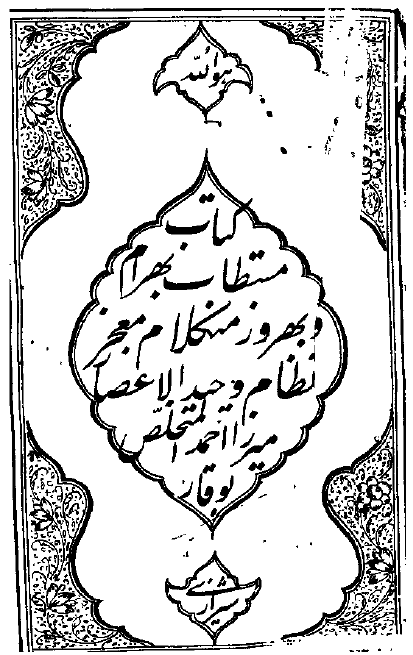 هو الله
کتاب
مستطاب بهرام
و بهروز من کلام معجز
نظام وحید الاعصار
میرزا احمد المتخلص
بوقار
شیرازی